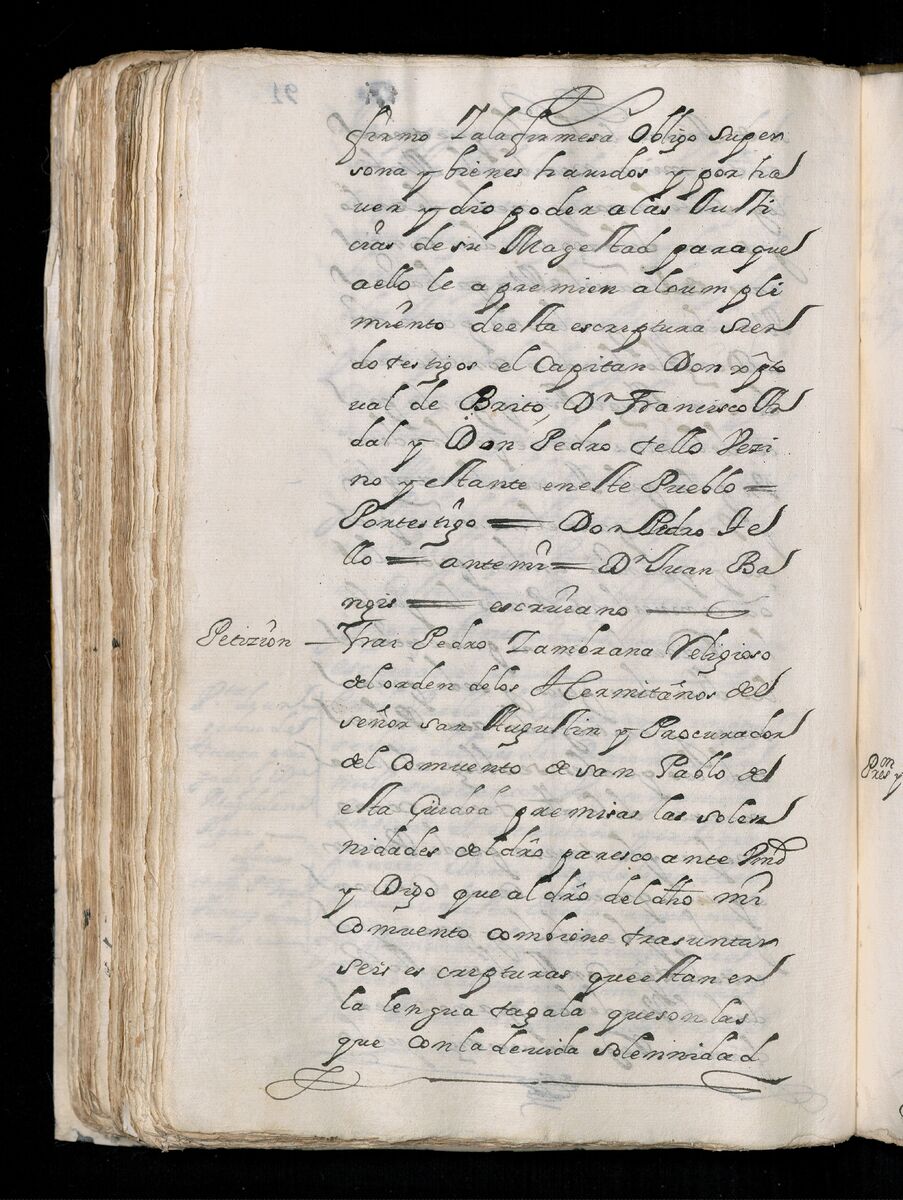 firmo Y ala firmesa Obligo su per
sona y bienes hauidos y por ha
uer y dio poder a las Justi
cias de su Magestad para que
a ello le apremien al cumpli
miento de esta escriptura sien
do testigos el Capitan Don xpto
ual de Brito, Dn Francisco Ar
dal y Don Pedro tello Vezi
no y estante en este Pueblo =
Por testigo = Don Pedro Te
llo = ante mi = Dn Juan Ba
ngis = escriuano
Petizion – Frai Pedro Zambrana Religioso
del orden de los Hermitaños del
señor san Augustin y Procurador
del Comuento de san Pablo de
esta Ciudad premisas las solen
nidades del dro paresco ante Vmd
y Digo que al dro del dho mi
Comuento combiene trasuntar
seis escripturas que estan en
la lengua tagala que son las
que con la deuida solennidad